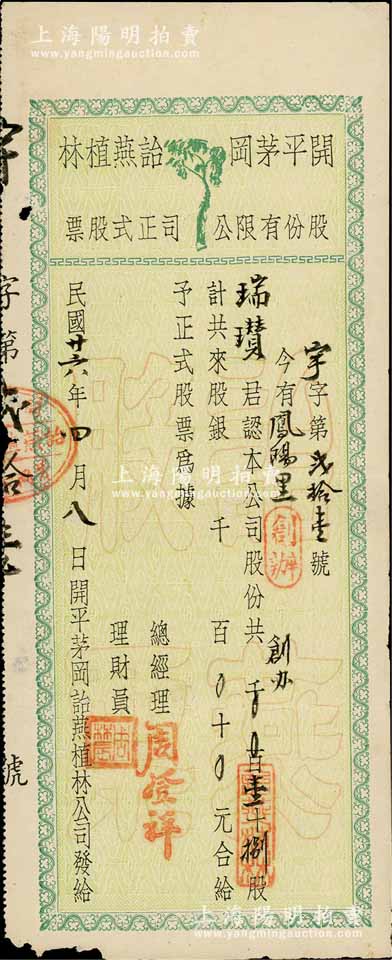 上海陽明拍賣
www.yangmingauction.com
開平茅岡詒燕植林
股份有限公司正式股票
宇字第弍拾壹號
今有鳳陽里
創辦
瑞瓚君認本公司股份共 創办 千0百壹十捌股
計共來股銀 千 百0十0元合給
予正式股票爲據
總經理 周登祥
理財員
民國廿六年四月八日開平茅岡詒燕植林公司發給
字第
號
上海陽明拍賣
www.yangmingauction.com
上海陽明拍賣
www.yangmingauction.com